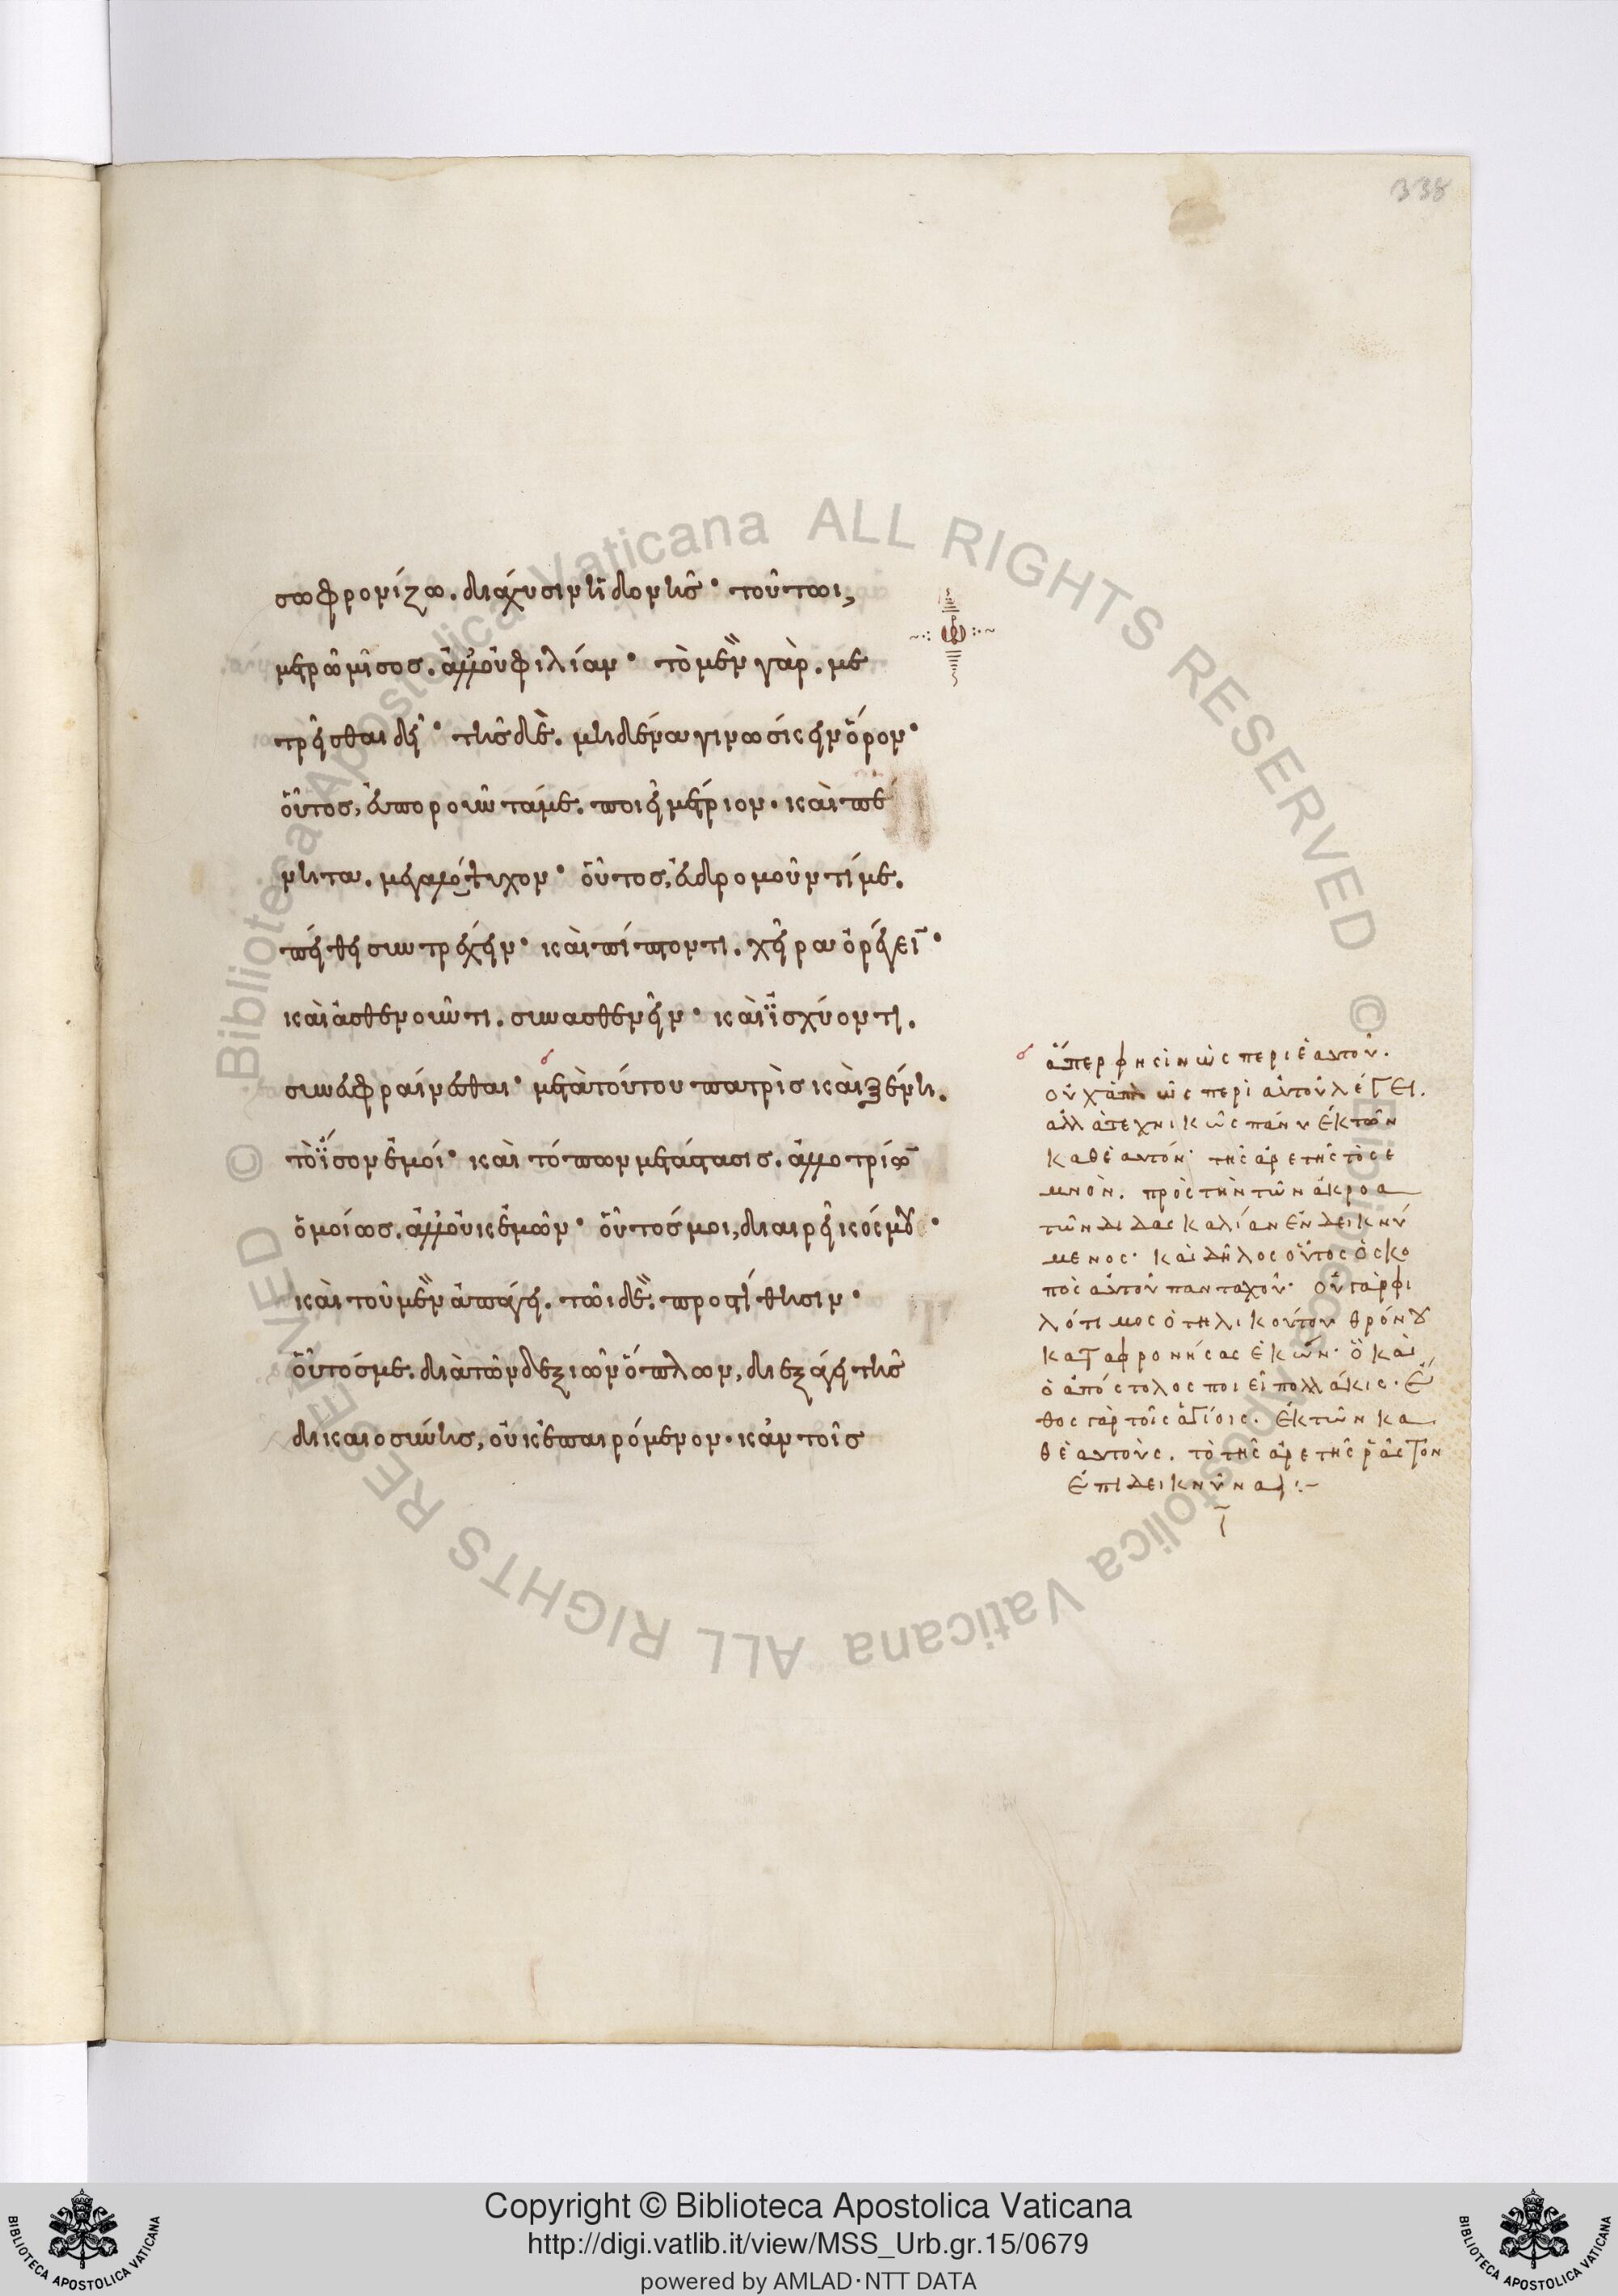 338
σωφρονίζω. διάχυσιν ἡδονῆς· τούτωι,
μενῶ μῖσος. ἀλλ' οὐ φιλίαν· τὸ μὲν γὰρ. με
τρεῖσθαι δεῖ· τῆς δὲ. μηδένα γινώσκειν ὅρον·
οὗτος, εὐποροῦντά με. ποιεῖ μέτριον. καὶ πέ
νητα. μεγαλόψυχον· οὗτος, εὐδρομοῦντί με.
πείθει συντρέχειν· καὶ πίπτοντι. χεῖρα ὀρέγειν·
καὶ ἀσθενοῦντι. συνασθενεῖν· καὶ ἰσχύοντι.
συνευφραίνεσθαι· μετὰ τούτου πατρὶς καὶ ξένη.
τὸ ἴσον ἐμοί· καὶ τόπων μετάστασις. ἀλλοτρίων
ὁμοίως. ἀλλ' οὐκ ἐμῶν· οὗτός μοι, διαιρεῖ κόσμους·
καὶ τοῦ μὲν ἀπάγει. τῶι δὲ. προστίθησιν·
οὗτός με. διὰ τῶν δεξιῶν ὅπλων, διεξάγει τῆς
δικαιοσύνης, οὐκ ἐπαιρόμενον. κἀν τοῖς
ἅπερ φησὶν ὡς περὶ ἑαυτοῦ.
οὐχ ἁπλῶς περὶ αὐτοῦ λέγει.
ἀλλὰ τεχνικῶς πάνυ ἐκ τῶν
καθ' ἑαυτόν· τῆς ἀρετῆς τὸ σε
μνὸν. πρὸς τὴν τῶν ἀκροα
τῶν διδασκαλίαν ἐνδεικνύ
μενος· καὶ δῆλος οὗτος ὁ σκο
πὸς αὐτοῦ πανταχοῦ· οὐ γὰρ φι
λότιμος ὁ τηλικούτου θρόνου
καταφρονήσας ἑκών· ὃ καὶ
ὁ ἀπόστολος ποιεῖ πολλάκις· ἔ
θος γὰρ τοῖς ἁγίοις. ἐκ τῶν κα
θ' ἑαυτοὺς. τὸ τῆς ἀρετῆς ῥᾷστον
ἐπιδεικνύναι:-
Copyright © Biblioteca Apostolica Vaticana
http://digi.vatlib.it/view/MSS_Urb.gr.15/0679
powered by AMLAD·NTT DATA
BIBLIOTECA APOSTOLICA VATICANA
BIBLIOTECA APOSTOLICA VATICANA
© Biblioteca Apostolica Vaticana ALL RIGHTS RESERVED
© Biblioteca Apostolica Vaticana ALL RIGHTS RESERVED